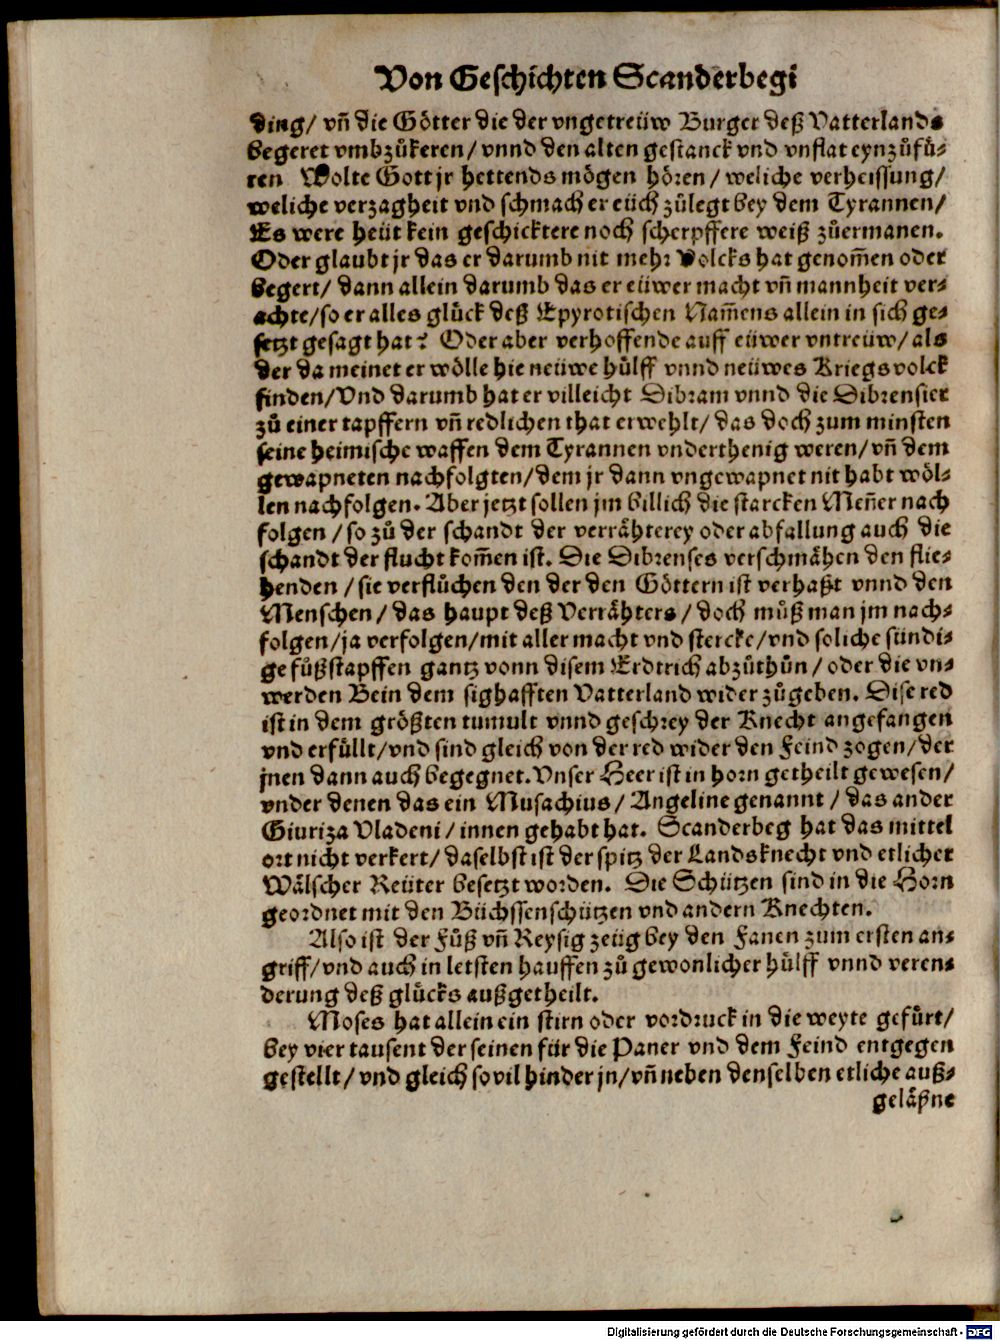 Von Geschichten Scanderbegi
ding/ vñ die Götter die der vngetreüw Burger deß Vatterlands
begeret vmbzůkeren/ vnnd den alten gestanck vnd vnflat eynzůfů-
ren Wolte Gott jr hettends mögen hören/ weliche verheissung/
weliche verzagheit vnd schmach er eüch zůlegt bey dem Tyrannen/
Es were heüt kein geschicktere noch scherpffere weiß zůermanen.
Oder glaubt jr das er darumb nit mehr Volcks hat genom̃en oder
begert/ dann allein darumb das er eüwer macht vñ mannheit ver-
achte/ so er alles glück deß Epyrotischen Nam̃ens allein in sich ge-
setzt gesagt hat? Oder aber verhoffende auff eüwer vntreüw/ als
der da meinet er wölle hie neüwe hülff vnnd neüwes Kriegsvolck
finden/ Vnd darumb hat er villeicht Dibram vnnd die Dibrensier
zů einer tapffern vñ redlichen that erwehlt/ das doch zum minsten
seine heimische waffen dem Tyrannen vnderthenig weren/ vñ dem
gewapneten nachfolgten/ dem jr dann vngewapnet nit habt wöl-
len nachfolgen. Aber jetzt sollen jm billich die starcken Meñer nach
folgen/ so zů der schandt der verrähterey oder abfallung auch die
schandt der flucht kom̃en ist. Die Dibrenses verschmähen den flie-
henden/ sie verflüchen den der den Göttern ist verhaßt vnnd den
Menschen/ das haupt deß Verrähters/ doch můß man jm nach-
folgen/ ja verfolgen/ mit aller macht vnd stercke/ vnd soliche sündi-
ge fůßstapffen gantz vonn disem Erdtrich abzůthůn/ oder die vn-
werden Bein dem sighafften Vatterland wider zůgeben. Dise red
ist in dem größten tumult vnnd geschrey der Knecht angefangen
vnd erfüllt/ vnd sind gleich von der red wider den Feind zogen/ der
jnen dann auch begegnet. Vnser Heer ist in horn getheilt gewesen/
vnder denen das ein Musachius/ Angeline genannt/ das ander
Giuriza Vladeni/ innen gehabt hat. Scanderbeg hat das mittel
ort nicht verkert/ daselbst ist der spitz der Landsknecht vnd etlicher
Wälscher Reüter besetzt worden. Die Schützen sind in die Horn
geordnet mit den Büchssenschützen vnd andern Knechten.
Also ist der Fůß vñ Reysig zeüg bey den Fanen zum ersten an-
griff/ vnd auch in letsten hauffen zů gewonlicher hülff vnnd veren-
derung deß glücks außgetheilt.
Moses hat allein ein stirn oder vordruck in die weyte gefürt/
bey vier tausent der seinen für die Paner vnd dem Feind entgegen
gestellt/ vnd gleich sovil hinder jn/ vñ neben denselben etliche auß-
geläßne
Digitalisierung gefördert durch die Deutsche Forschungsgemeinschaft - DFG